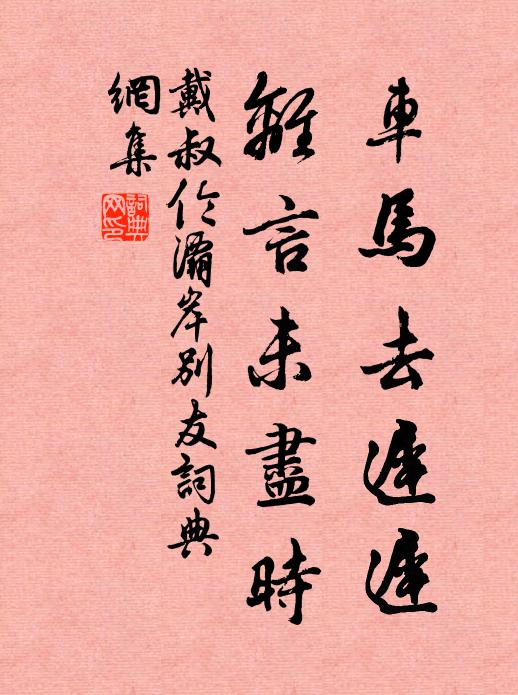 車馬去遲遲
離言未盡時
戴叔伦灞岸別友詞典
網集
詞典網印